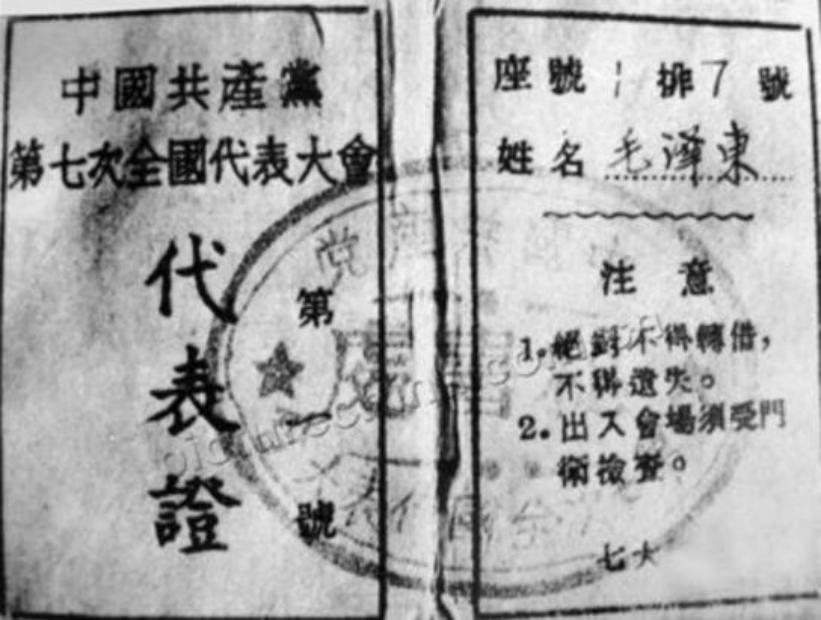 中國共產黨
第七次全國代表大會
代表證
第一號
座號 1 排 7 號
姓名 毛澤東
注意
1. 絕對不得轉借,
不得遺失。
2. 出入會場須受門
衛檢查。
七大